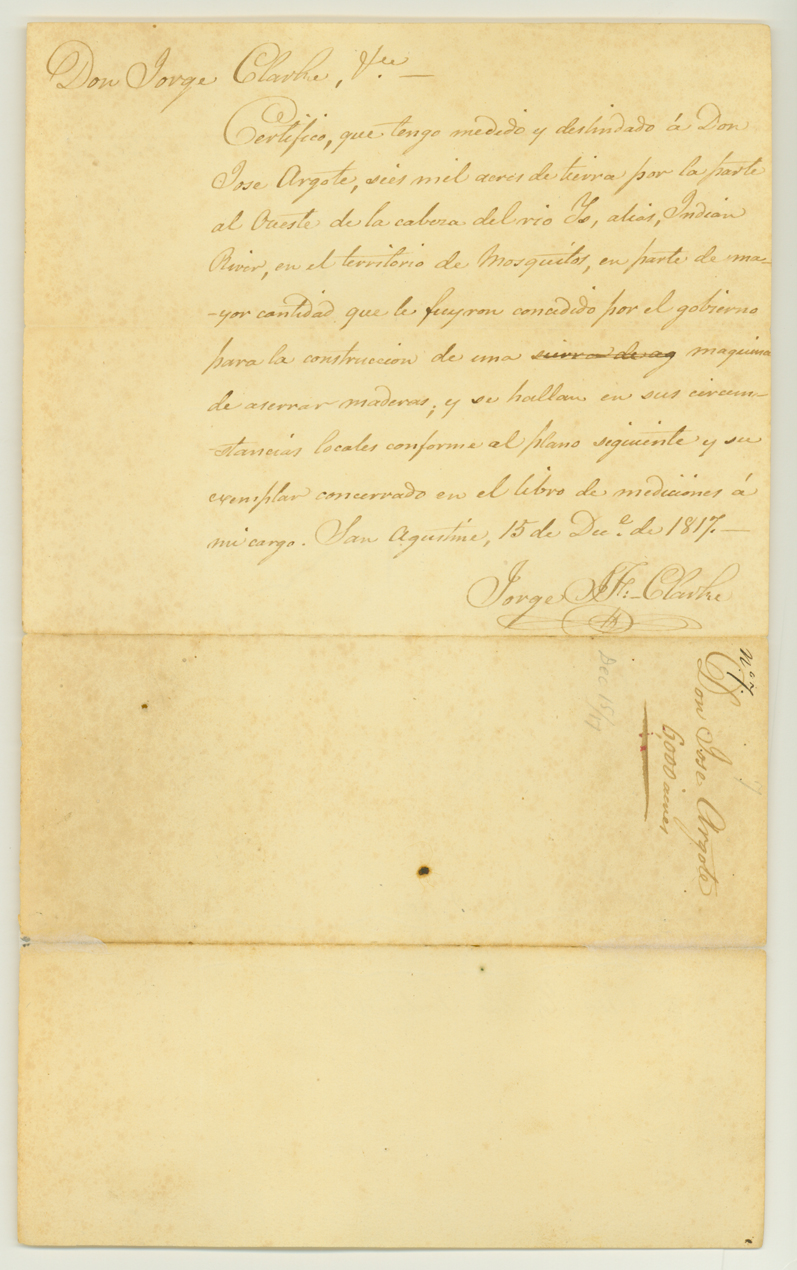 Don Jorge Clarke, &ce —
Certifico, que tengo medido y deslindado á Don
Jose Argote, seis mil acres de tierra por la parte
al Oueste de la cabeza del rio Ys, alias, Indian
River, en el territorio de Mosquitos, en parte de ma-
-yor cantidad que le fuyron concedido por el gobierno
para la construccion de una sierra de ag maquina
de aserrar maderas; y se hallan en sus circum-
-stancias locales conforme al plano siguiente y su
exemplar concerrado en el libro de mediciones á
mi cargo. San Agustine, 15 de Dice. de 1817. —
Jorge J. F. Clarke
Dec 15/17
No 7.
Don Jose Argote
6,000 acres